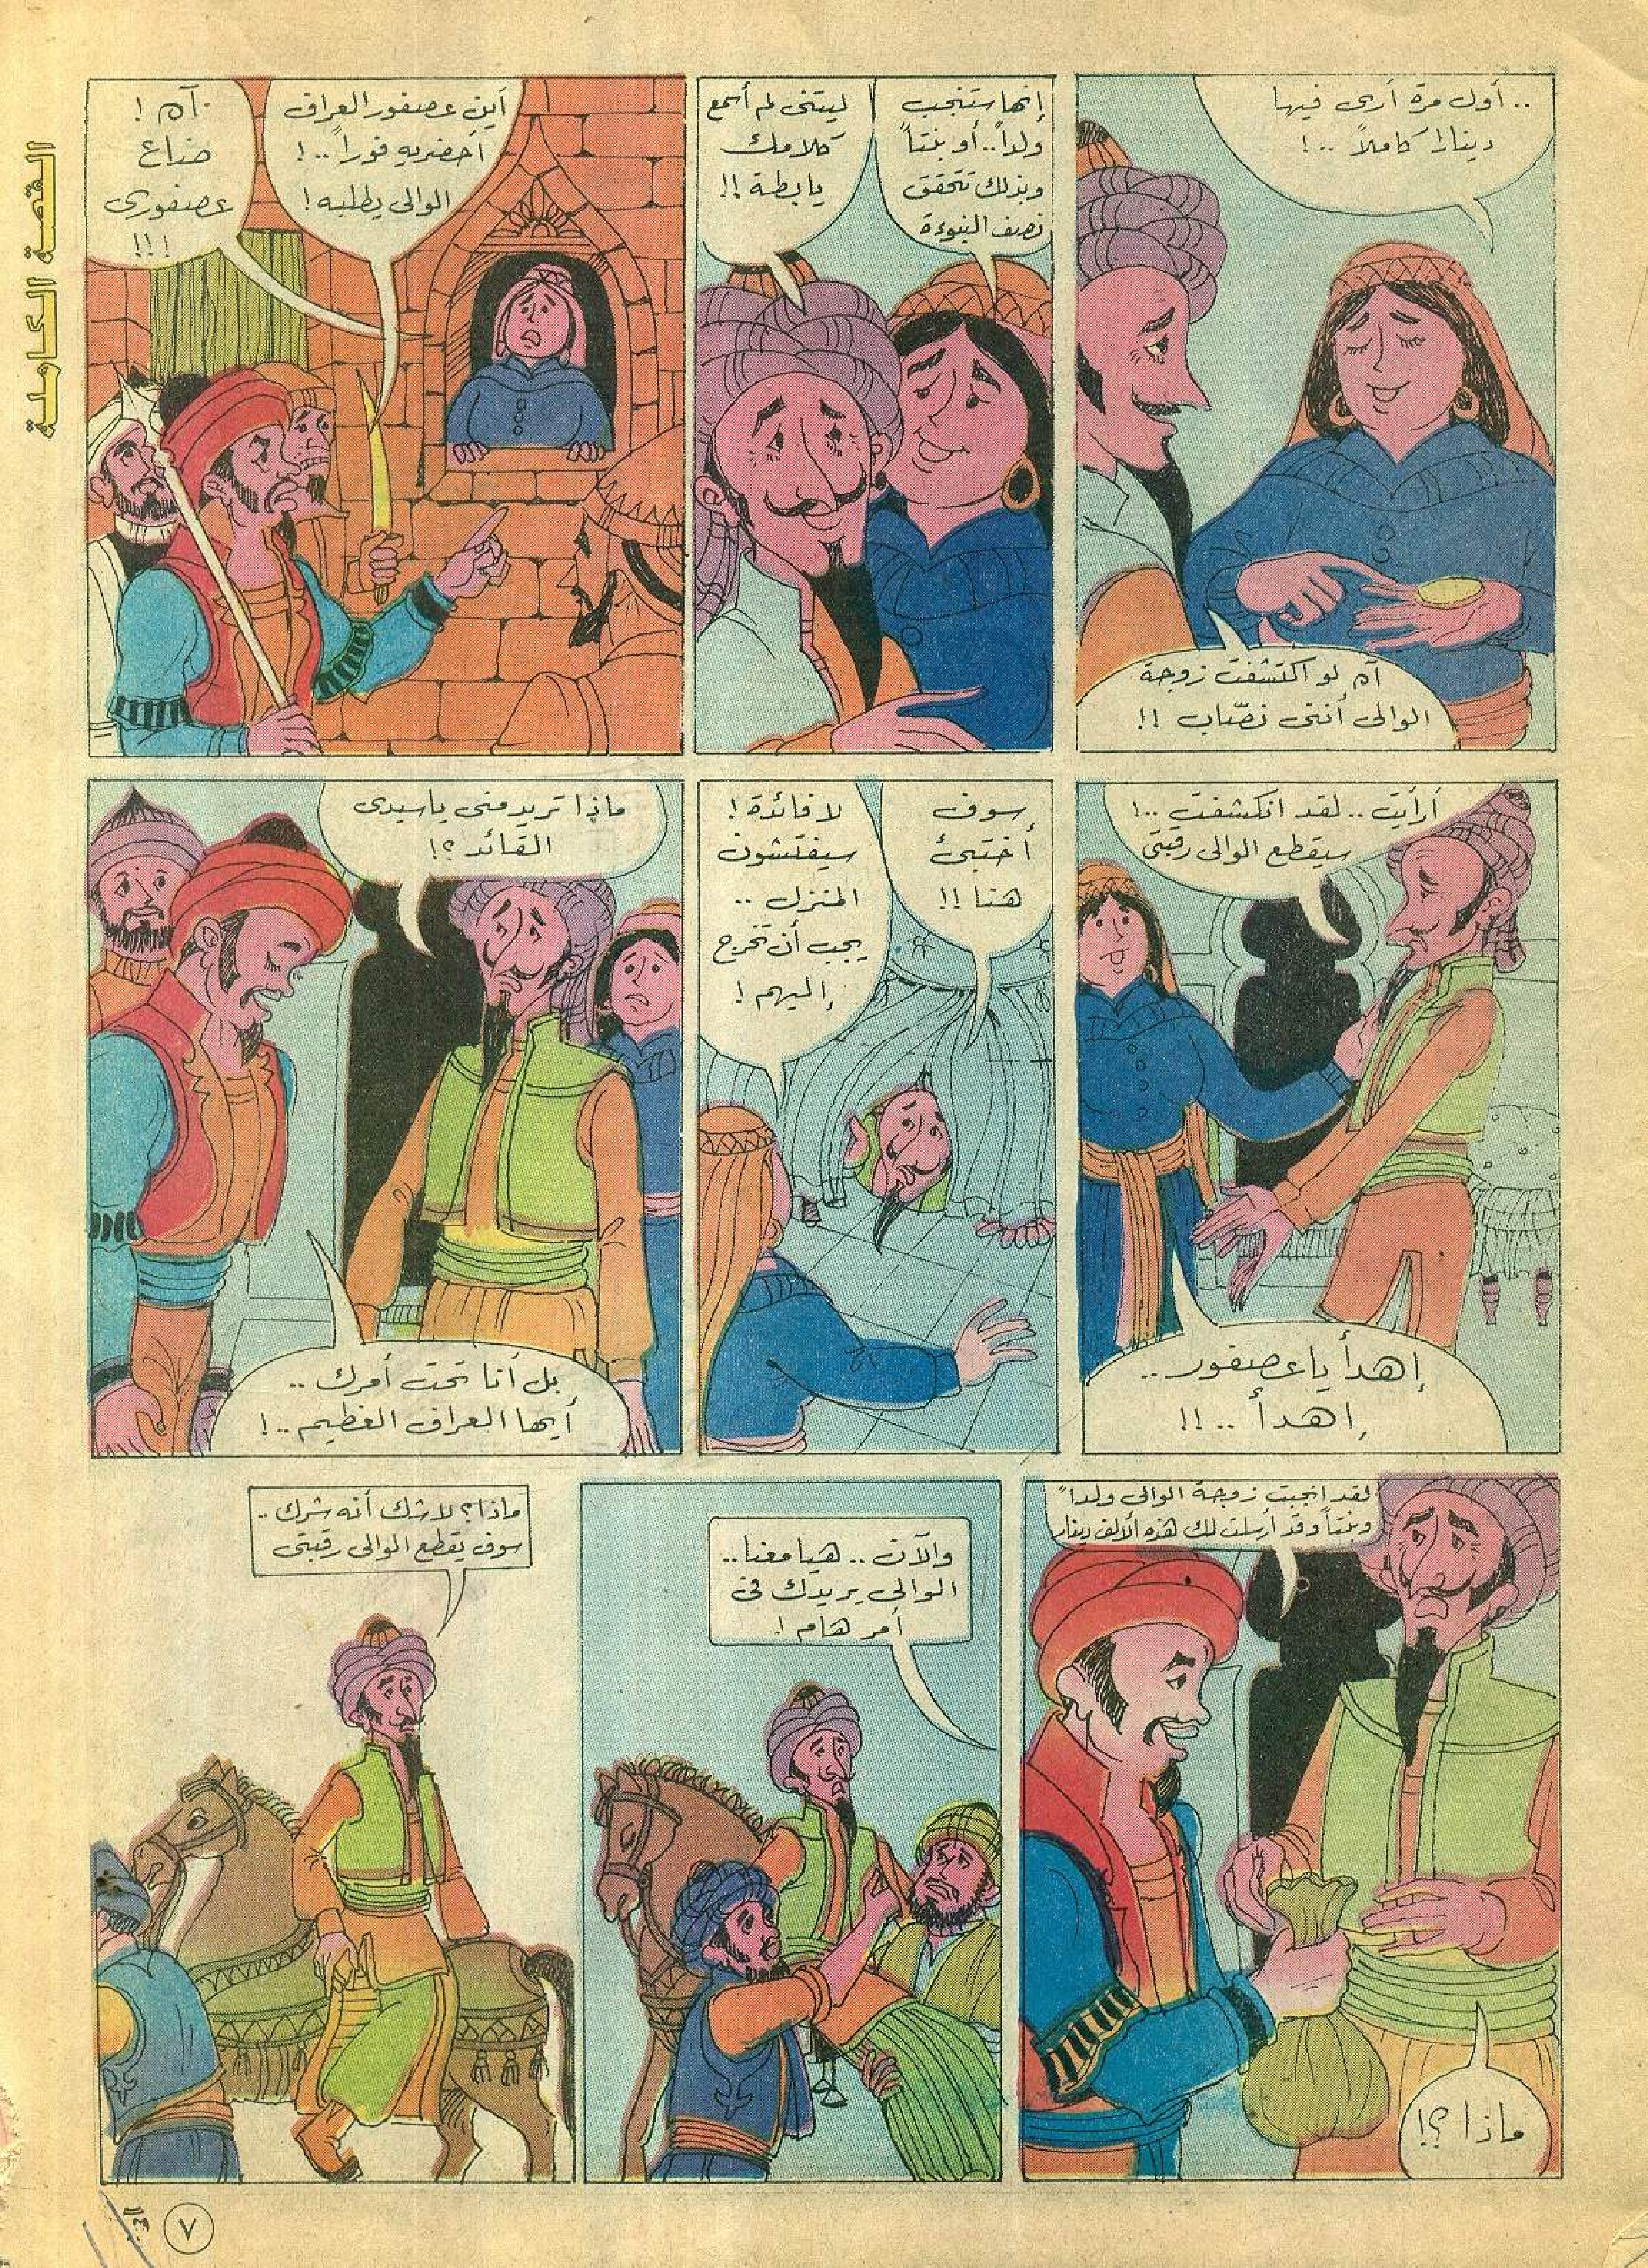 القصة الكاملة
.. أول مرة أرى فيها
دينارا كاملاً ..!
آه لو اكتشفت زوجة
الوالى أننى نصّاب !!
إنها ستنجب
ولداً .. أو بنتاً
وبذلك تتحقق
نصف النبوءة
ليتنى لم أسمع
كلامك
يابطة !!
أين عصفور العراف
أحضريه فوراً ..!
الوالى يطلبه !
آه !
ضاع
عصفورى
!!!
أرأيت .. لقد انكشفت ..!
سيقطع الوالى رقبتى
إهدأ ياعصفور ..
إهدأ .. !!
سوف
أختبئ
هنا !!
لا فائدة !
سيفتشون
المنزل ..
يجب أن تخرج
إليهم !
ماذا تريد منى ياسيدى
القائد ؟!
بل أنا تحت أمرك ..
أيها العراف العظيم ..!
لقد انجبت زوجة الوالى ولداً
وبنتاً وقد أرسلت لك هذه الألف دينار
ماذا ؟!
والآن .. هيا معنا ..
الوالى يريدك فى
أمر هام !
ماذا ؟ لاشك أنه شرك ..
سوف يقطع الوالى رقبتى
٧